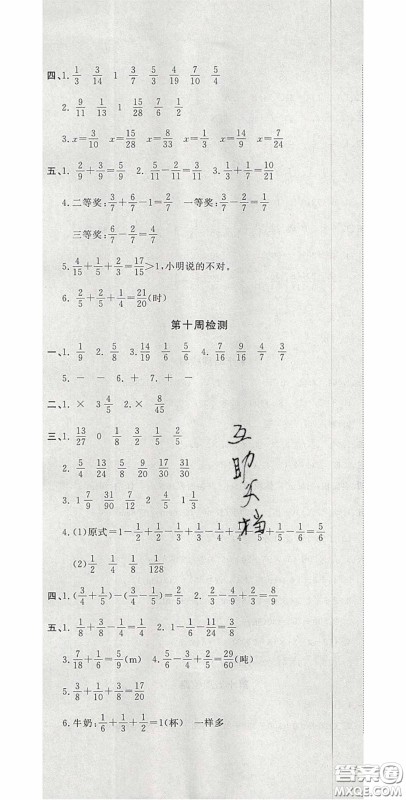 四、1. 1/3 3/14 1 3/7 5/3 4/9 5/7 6/7
2. 9/11 1/13 1 15/28 7/6 1/2
3. x=3/10 x=15/28 x=8/33 x=1/3 x=9/14
五、1. 2/9+3/9=5/9 2. 5/11-2/11=3/11 3. 1/3+1/7=10/21
4. 二等奖:3/7+6/7-1=2/7 一等奖:3/7-2/7=1/7
三等奖:6/7-2/7=4/7
5. 4/15+1/5+2/3=17/15>1,小明说的不对。
6. 2/5+2/5+1/4=21/20(时)
第十周检测
一、1. 1/9 2. 5/8 3. 14/19 1/6 5/6 4. 7/16 9/4 3/7
5. - - 6. + + 7. + -
二、1. × 3 4/5 2. × 8/45
三、1. 13/27 0 1/8 1/3 1/2 2/5
2. 5/8 7/24 13/54 5/8 9/20 17/30 31/30
3. 1 7/9 31/90 7/12 2/5 1 1/5
4. (1)原式=1-1/2+1/2-1/3+1/3-1/4+1/4-1/5+1/5-1/6=5/6
(2)1/2 1/4 1/8 1/128
四、(3/4+1/5)-(3/4-1/5)=2/5 2/3-2/9+4/9=8/9
五、1. 1/8+3/8-1/4=1/4 2. 1-11/24-1/6=3/8
3. 7/18+1/6=5/9(m) 4. 3/4-2/3+2/5=29/60(吨)
5. 5/8 3/10 3/8 17/20
6. 牛奶:1/6+1/3+1/2=1(杯) 一样多
互助文档
答案圈
MXQE.COM